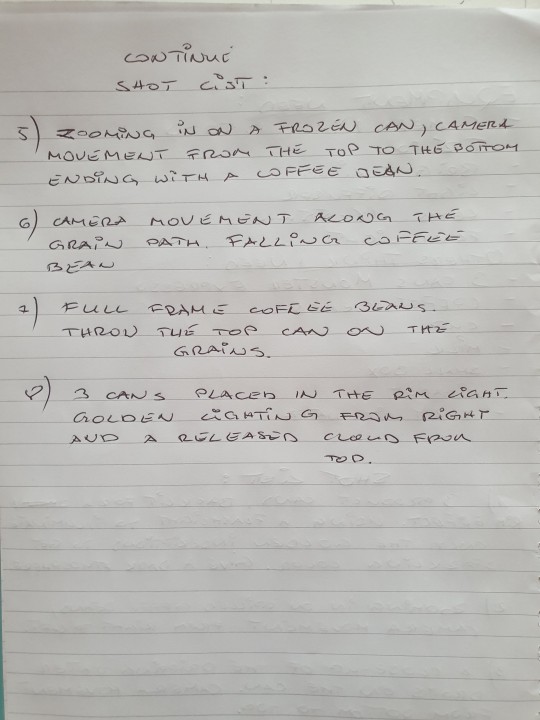 CONTINUE
SHOT LIST:
5) ZOOMING IN ON A FROZEN CAN, CAMERA
MOVEMENT FROM THE TOP TO THE BOTTOM
ENDING WITH A COFFEE BEAN.
6) CAMERA MOVEMENT ALONG THE
GRAIN PATH. FALLING COFFEE
BEAN
7) FULL FRAME COFFEE BEANS.
THROW THE TOP CAN ON THE
GRAINS.
8) 3 CANS PLACED IN THE RIM LIGHT.
GOLDEN LIGHTING FROM RIGHT
AND A RELEASED CLOUD FROM
TOP.